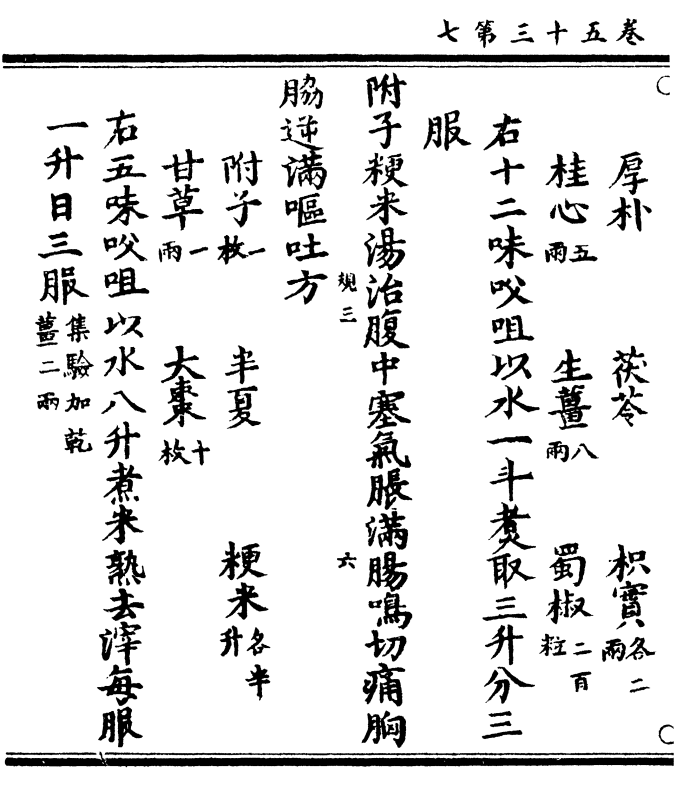 卷五十三第七
厚朴 茯苓 枳實各二兩
桂心五兩 生薑八兩 蜀椒二百粒
右十二味㕮咀以水一斗煑取三升分三
服
附子粳米湯治腹中塞氣脹滿腸鳴切痛胸
規三 六
脇逆滿嘔吐方
附子一枚 半夏 粳米各半升
甘草一兩 大棗十枚
右五味㕮咀以水八升煮米熟去滓每服
一升日三服集驗加乾薑二兩